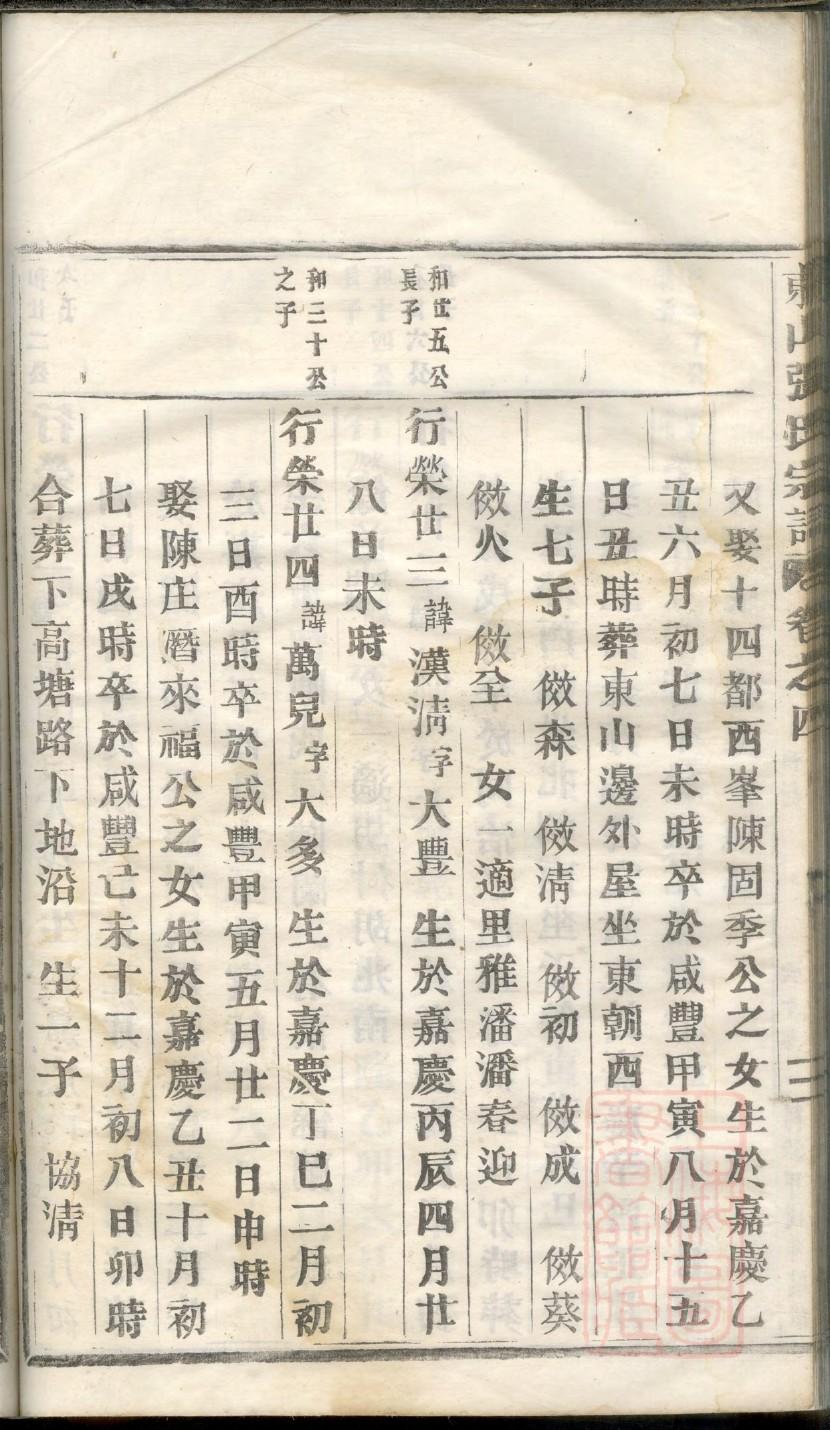 東山張氏宗譜 卷之四 三
又娶十四都西峯陳固季公之女生於嘉慶乙
丑六月初七日未時卒於咸豐甲寅八月十五
日丑時葬東山邊外屋坐東朝西
生七子 傚森 傚清 傚初 傚成 傚葵
傚火 傚全 女一適里雅潘潘春迎
和廿五公
長子
行榮廿三諱漢清字大豐 生於嘉慶丙辰四月廿
八日未時
和三十公
之子
行榮廿四諱萬兒字大多 生於嘉慶丁巳二月初
三日酉時卒於咸豐甲寅五月廿二日申時
娶陳庄厝來福公之女生於嘉慶乙丑十月初
七日戌時卒於咸豐己未十二月初八日卯時
合葬下高塘路下地沿 生一子 協清